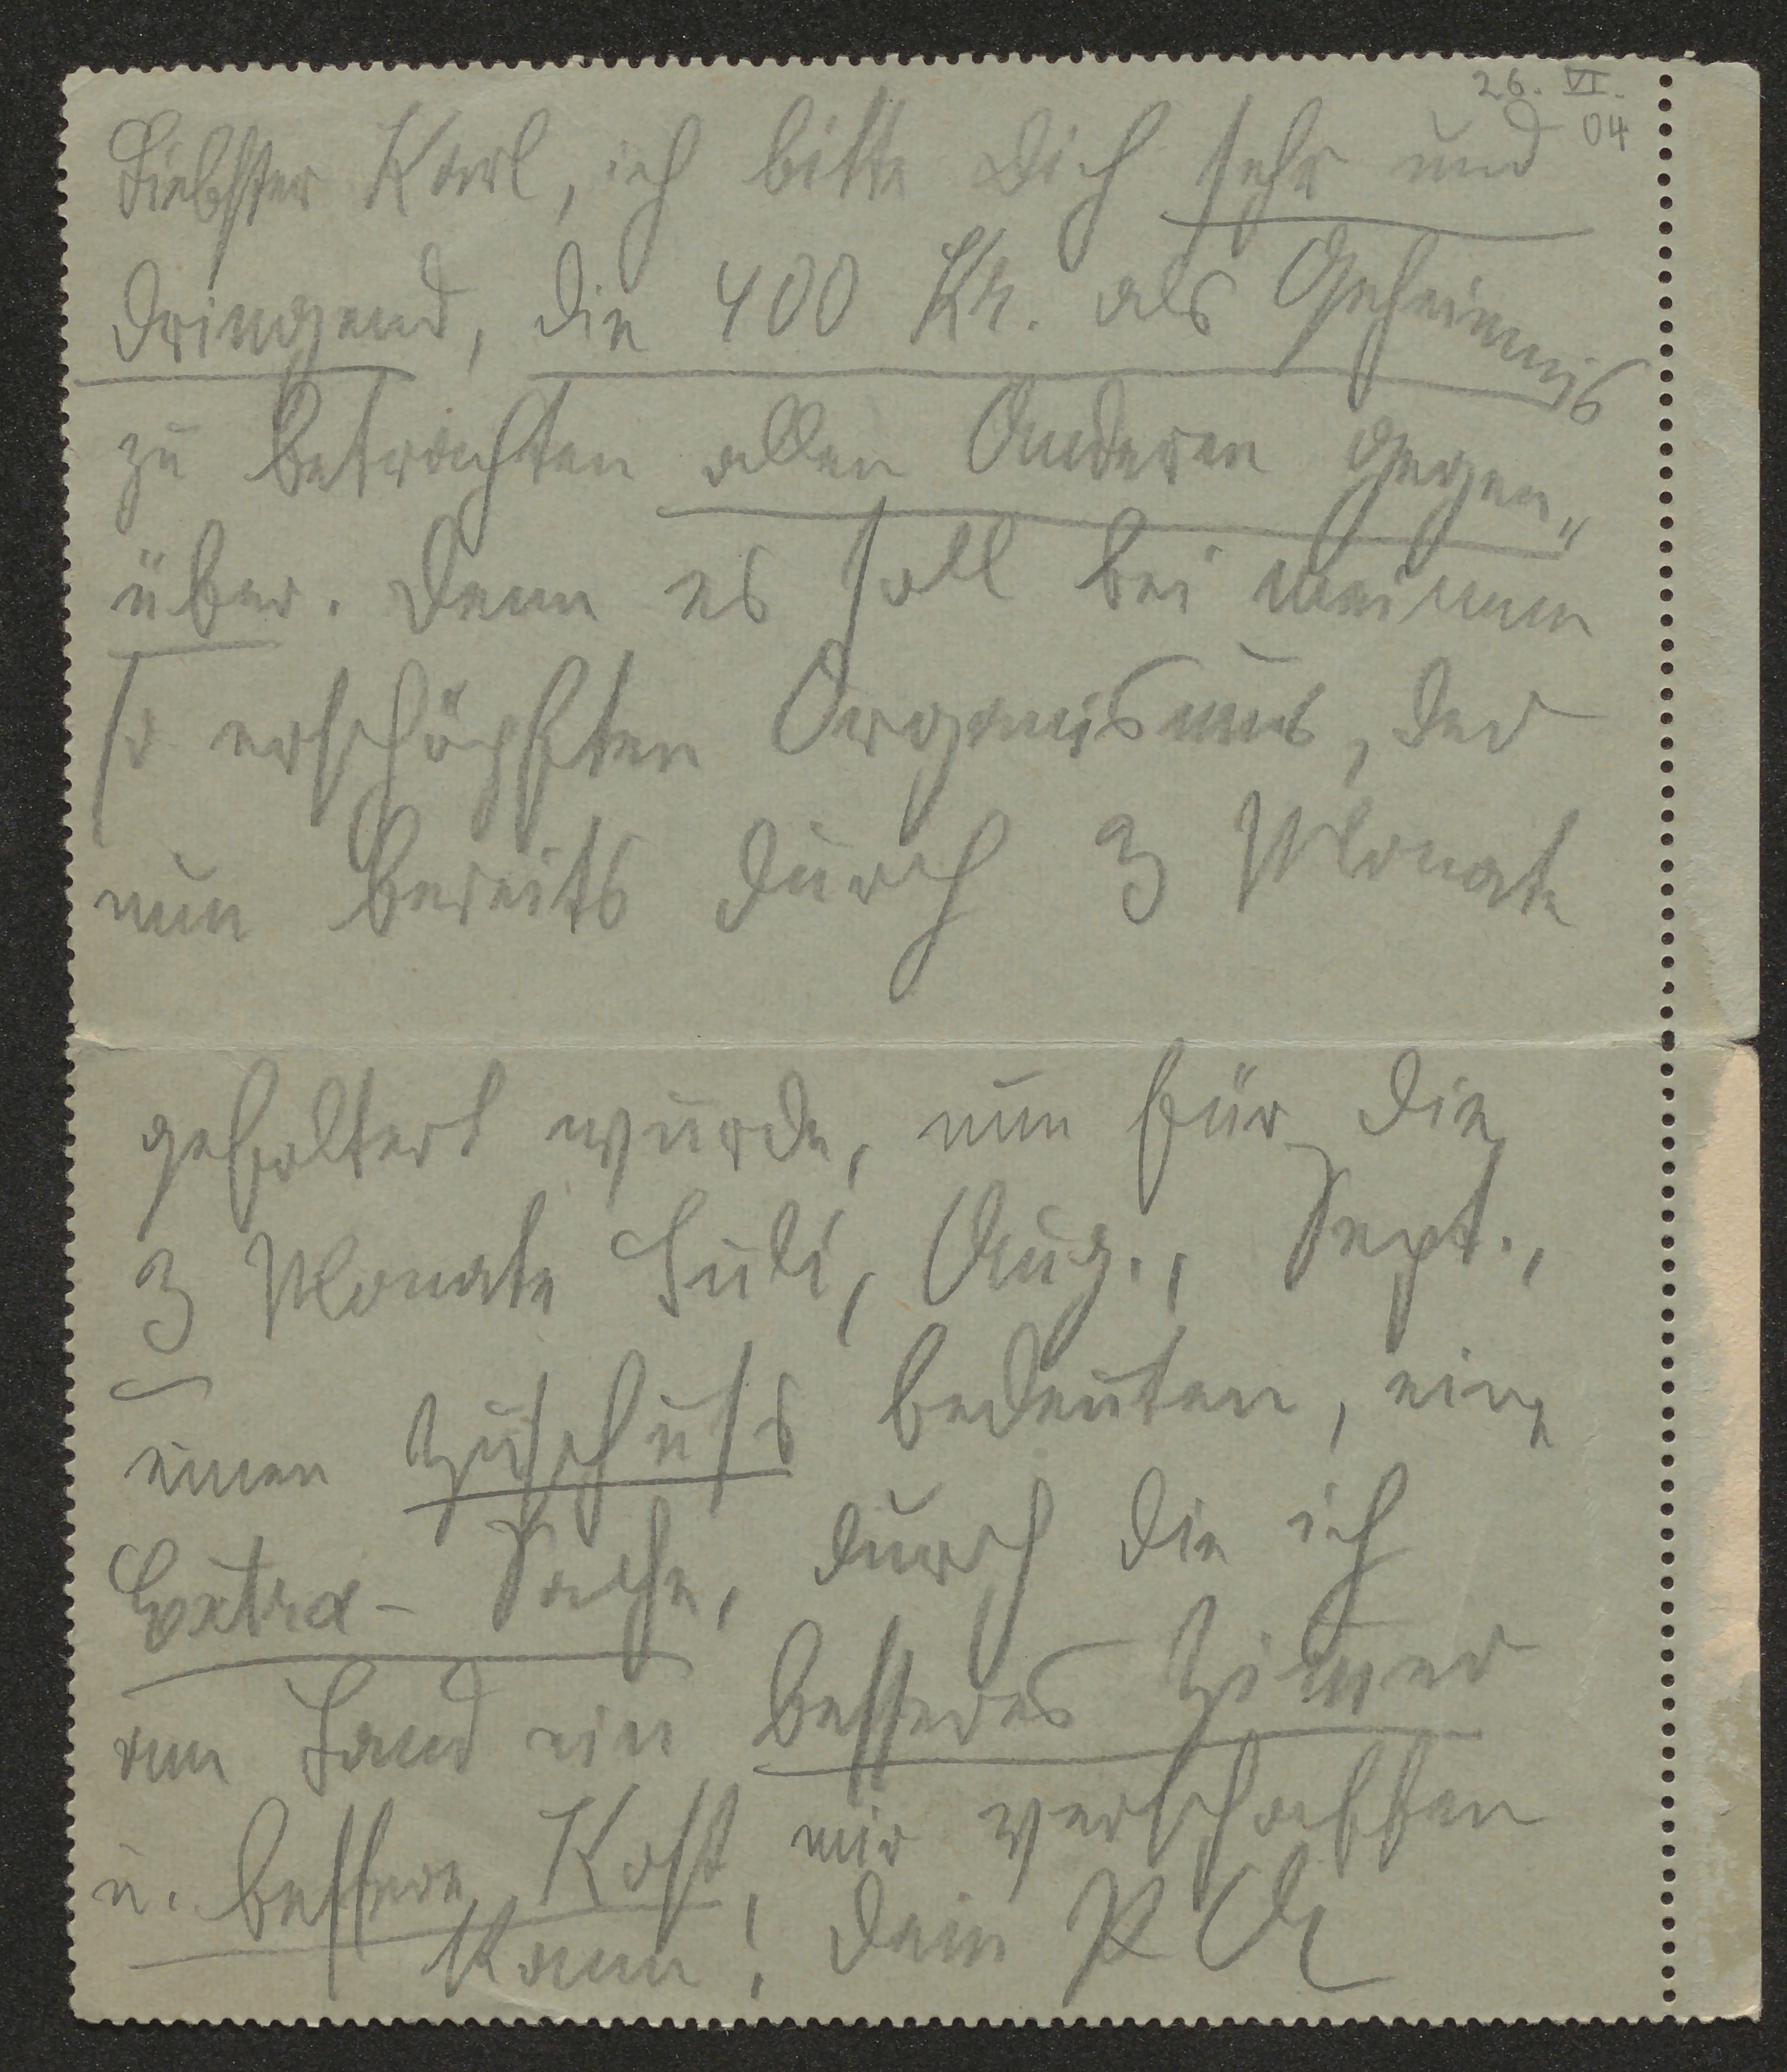 26. VI.
04
Liebster Karl, ich bitte Dich sehr und
dringend, die 400 Kr. als Geheimnis
zu betrachten allen Anderen gegen„
über. Denn es soll bei meinem
so erschöpften Organismus, der
nun bereits durch 3 Monate
gefoltert wurde, nun für die
3 Monate Juli, Aug., Sept.,
einen Zuschuss bedeuten, eine
Extra-Sache, durch die ich
am Land ein besseres Zimer
u. bessere Kost mir verschaffen
kann! Dein PA